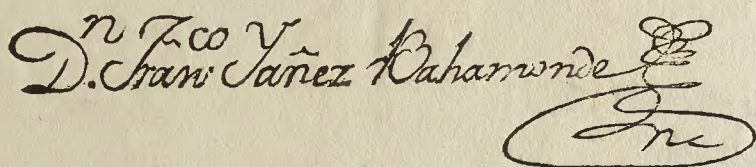 D.n Fran.co Yañez Bahamonde